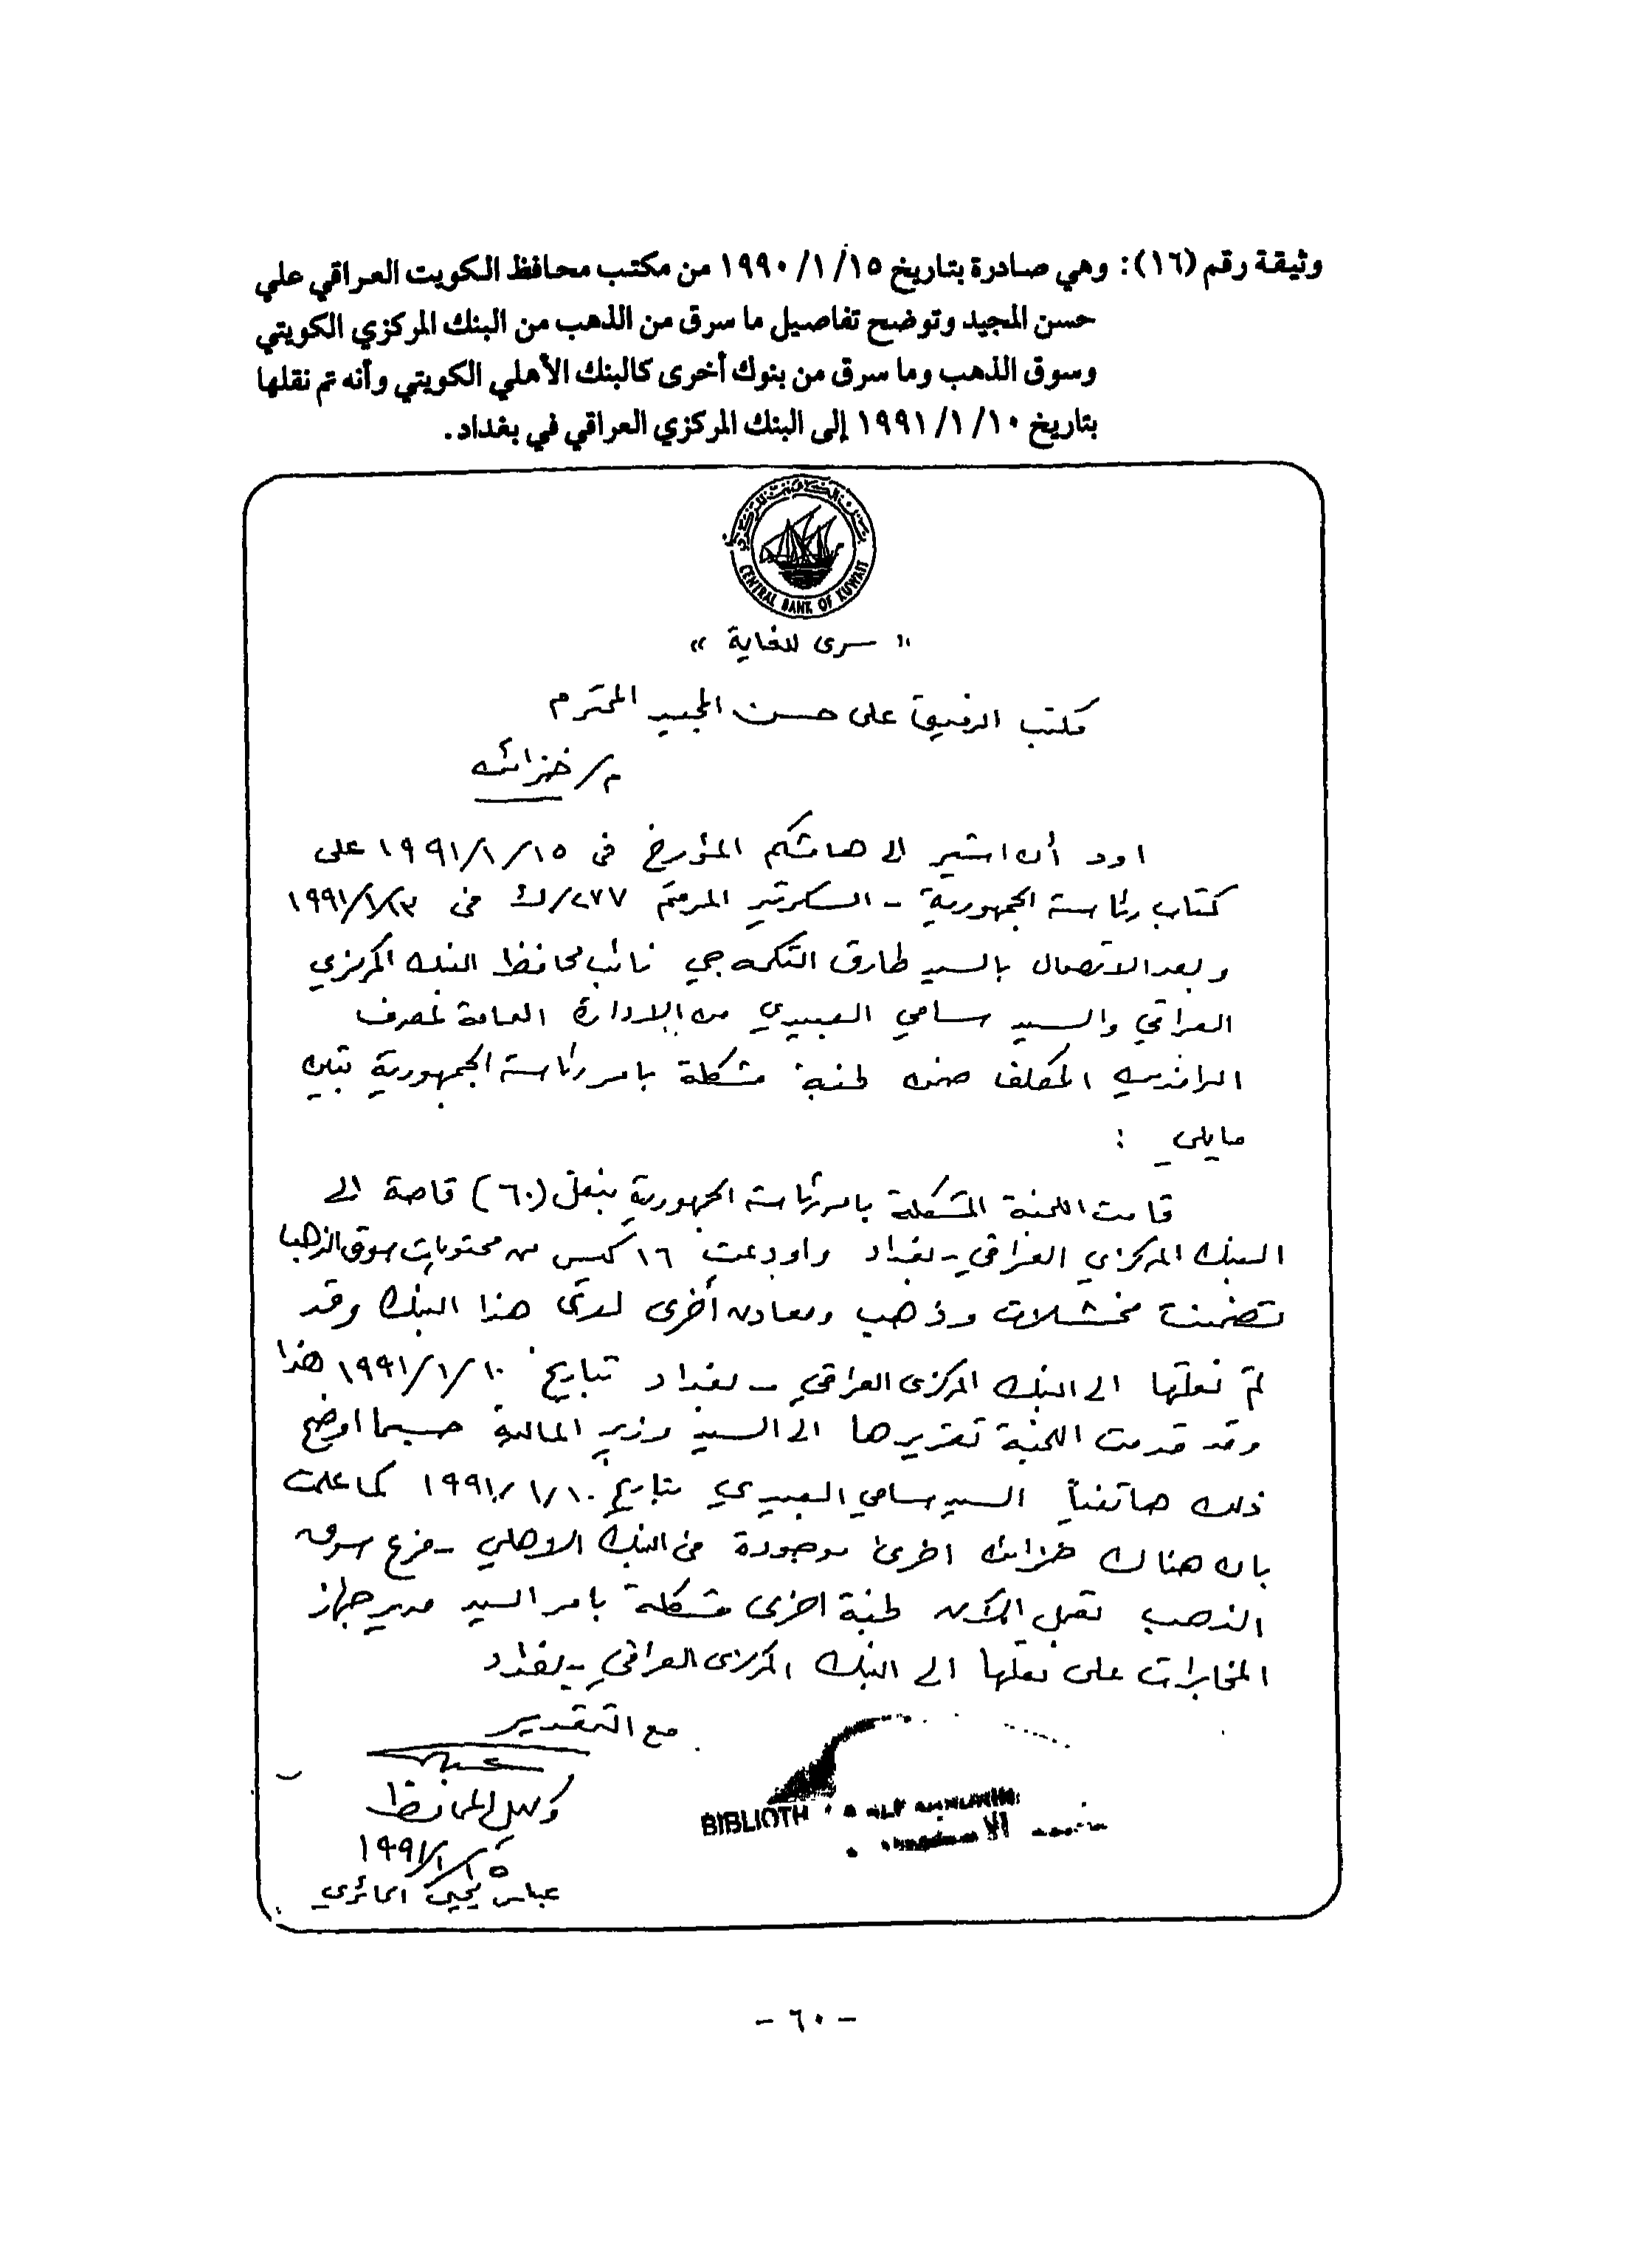 وثيقة رقم (١٦): وهي صادرة بتاريخ ١٥/ ١/ ١٩٩٠ من مكتب محافظ الكويت العراقي علي
حسن المجيد وتوضح تفاصيل ما سرق من الذهب من البنك المركزي الكويتي
وسوق الذهب وما سرق من بنوك أخرى كالبنك الأهلي الكويتي وأنه تم نقلها
بتاريخ ١٠/ ١/ ١٩٩١ إلى البنك المركزي العراقي في بغداد.
CENTRAL BANK OF KUWAIT
« سرى للغاية »
مكتب الرفيق على حسن المجيد المحترم
م/ خزائن
اود أن اشير الى هامشكم المؤرخ فى ١٥/١/١٩٩١ على
كتاب رئاسة الجمهورية - السكرتير المرقم ٢٧٧/ك فى ١٩٩١/١/١٣
وبعد الاتصال بالسيد طارق التكمه جي نائب محافظ البنك المركزي
العراقي والسيد سامي العبيدي من الادارة العامة لمصرف
الرافدين المكلف ضمن لجنة مشكلة بامر رئاسة الجمهورية تبين
مايلي :
قامت اللجنة المشكلة بامر رئاسة الجمهورية بنقل (٦٠) قاصة الى
البنك المركزي العراقي - بغداد واودعت ١٦ كيس من محتويات سوق الذهب
تضمنت مخشلات وذهب ومعادن أخرى لدى هذا البنك وقد
تم نقلها الى البنك المركزى العراقي - بغداد بتاريخ ١٠/١/١٩٩١ هذا
وقد قدمت اللجنة تقريرها الى السيد وزير المالية حسبما اوضح
ذلك هاتفياً السيد سامي العبيدي بتاريخ ١٠/١/١٩٩١ كما علمت
بان هناك خزائن اخرى موجودة فى البنك الاهلي - فرع سوق
الذهب تعمل الآن لجنة اخرى مشكلة بامر السيد مدير جهاز
المخابرات على نقلها الى البنك المركزى العراقي - بغداد
مع التقدير
وكيل المحافظ
١٥/١/١٩٩١
عباس يحيى الحائري
BIBLIOTH
- ٦٠ -